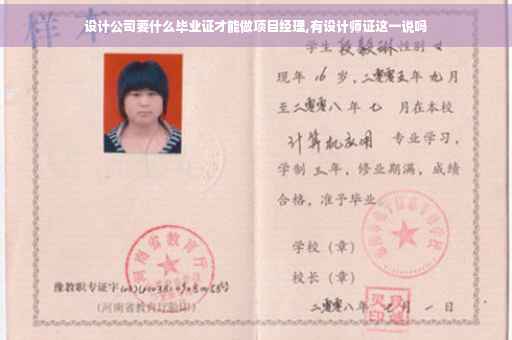 设计公司要什么毕业证才能做项目经理,有设计师证这一说吗
样本
学生段毅琳性别女
现年16岁,二零零五年九月
至二零零八年七月在本校
计算机应用 专业学习,
学制三年,修业期满,成绩
合格,准予毕业
学校(章)
校长(章)
二零零八年 月一日
河南省教育厅
豫教职专证字
(河南省教育厅验印)